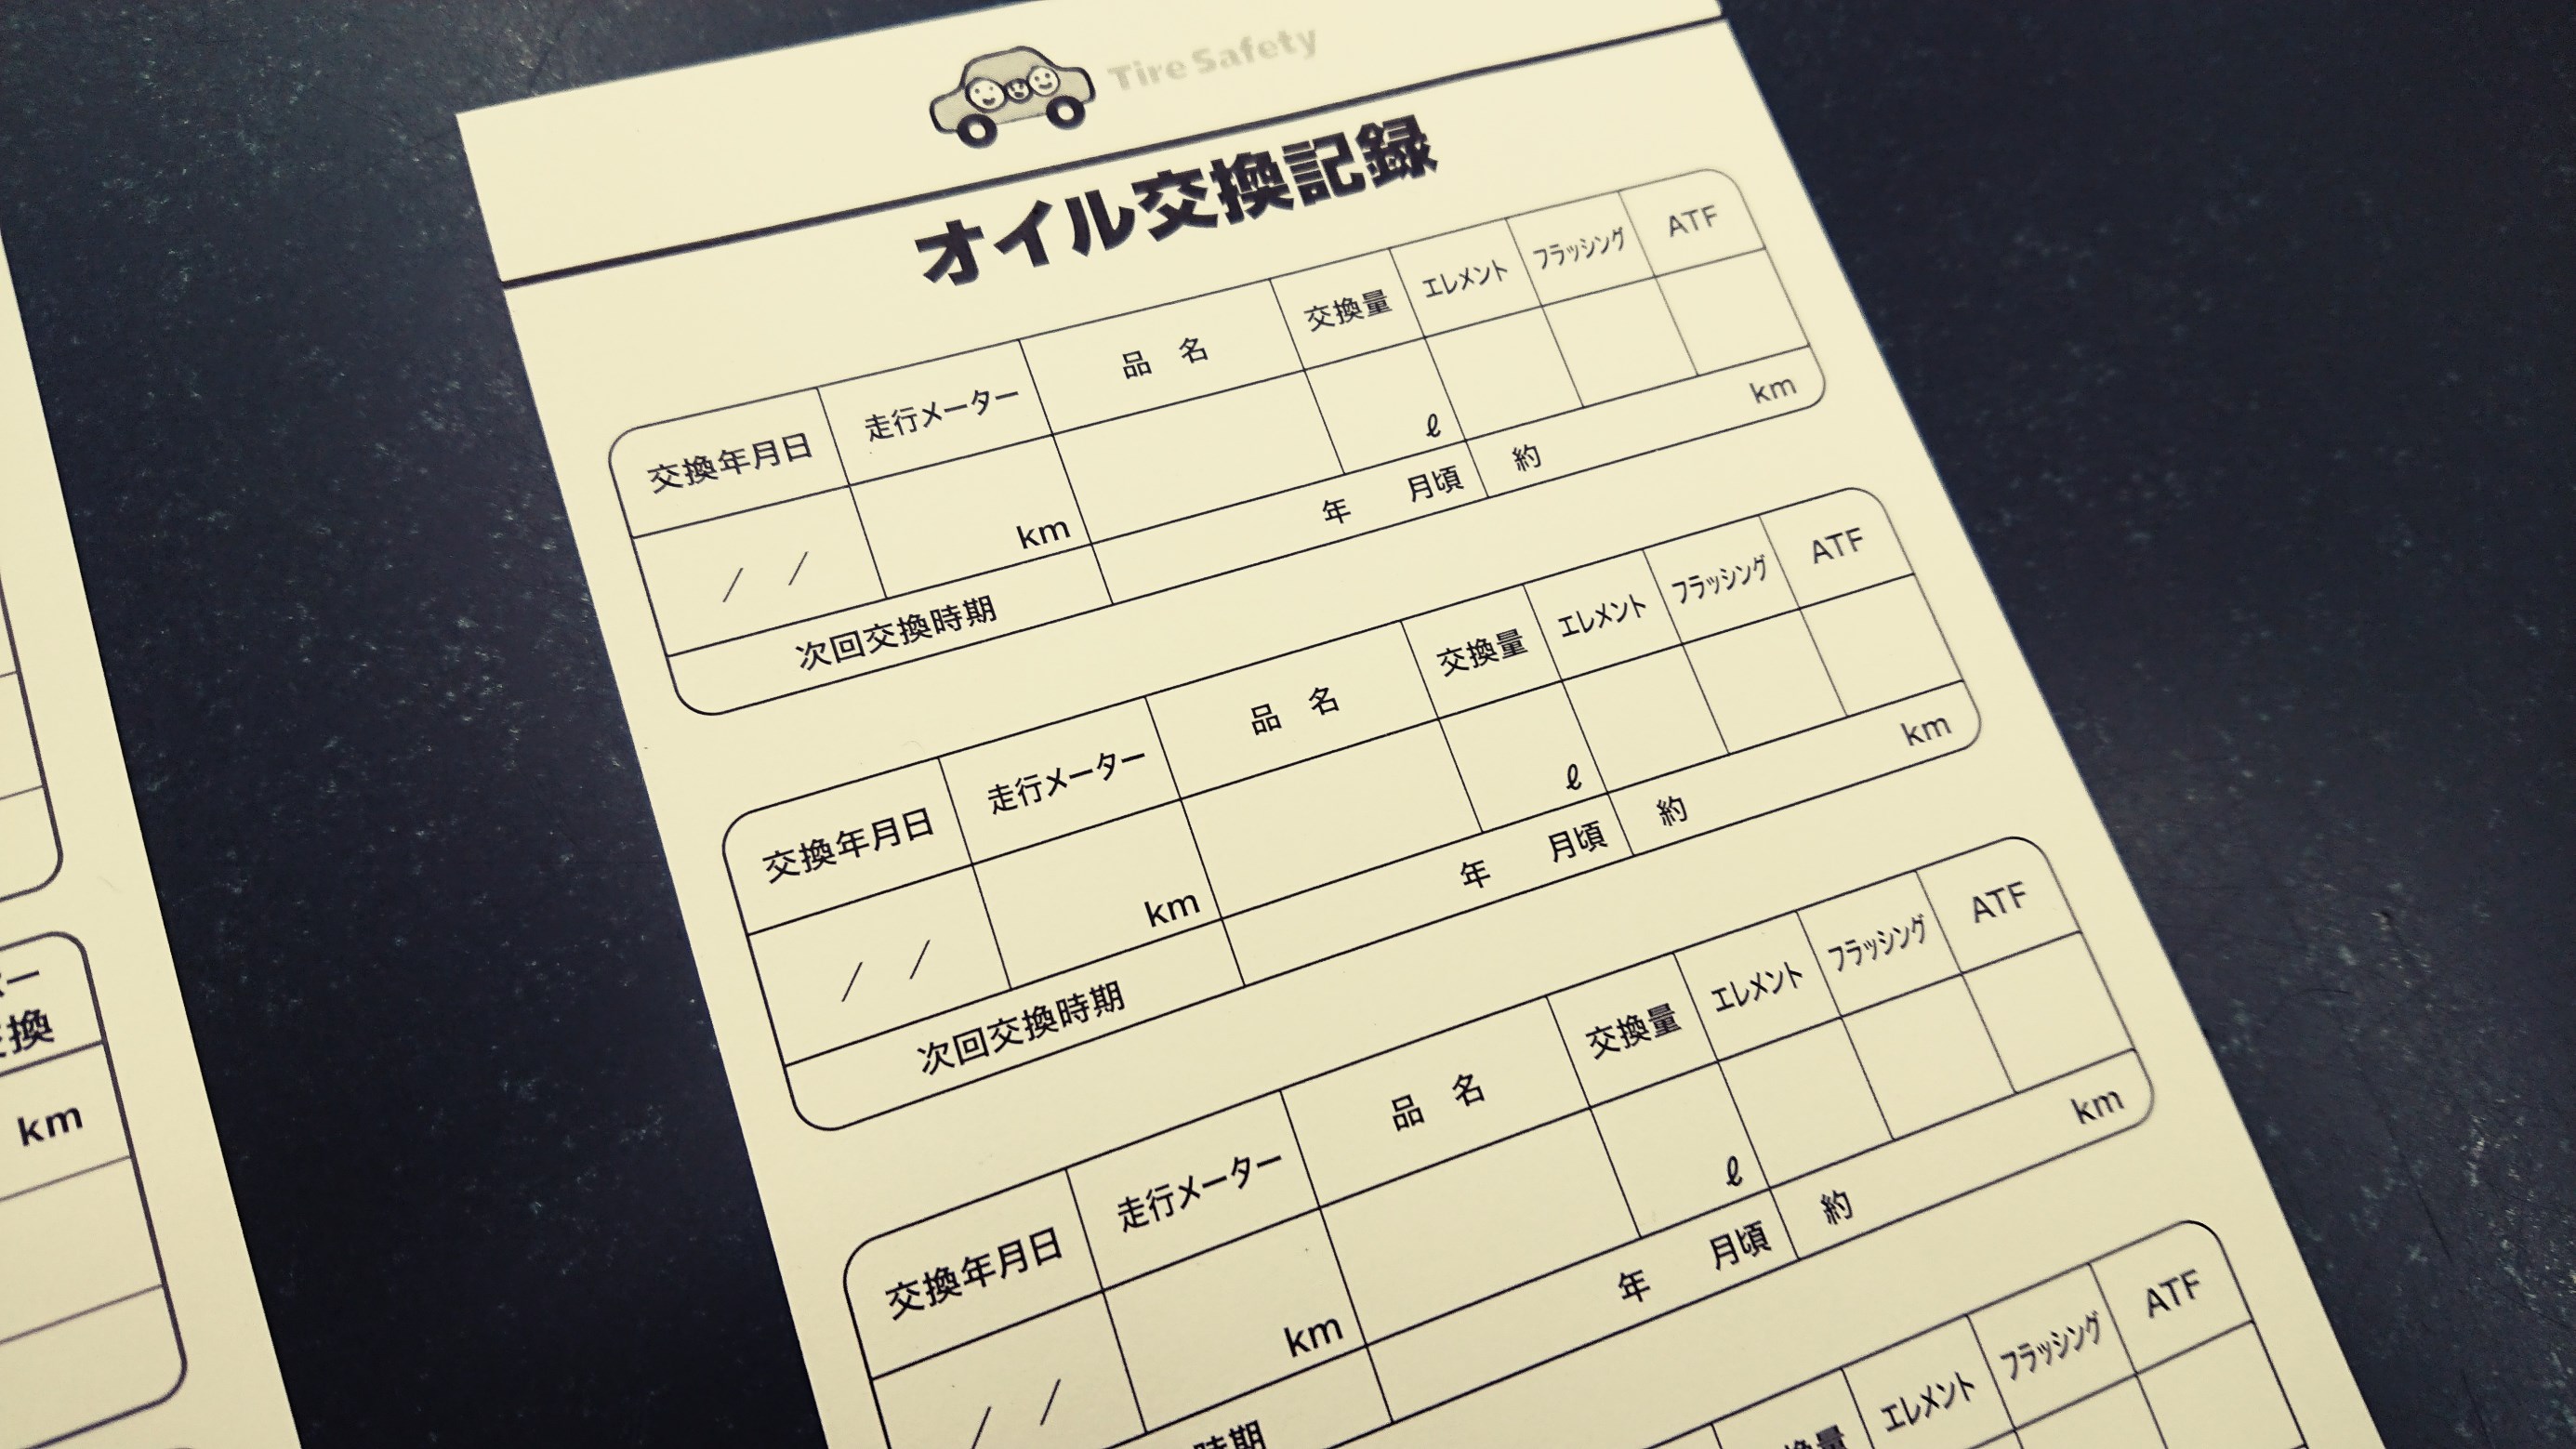 Tire Safety
オイル交換記録
交換年月日 走行メーター 品 名 交換量 エレメント フラッシング ATF
/ / km ℓ
次回交換時期 年 月頃 約 km
交換年月日 走行メーター 品 名 交換量 エレメント フラッシング ATF
/ / km ℓ
次回交換時期 年 月頃 約 km
交換年月日 走行メーター 品 名 交換量 エレメント フラッシング ATF
/ / km ℓ
時期 年 月頃 約 km
換量 エレメント フラッシング ATF
換
km